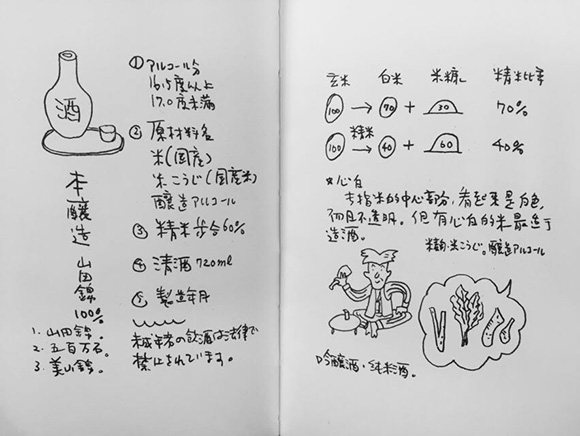 酒
本醸造 山田錦 100%
1. 山田錦。
2. 五百万石。
3. 美山錦。
① アルコール分
16.5度以上
17.0度未満
② 原材料名
米(国産)
米こうじ(国産米)
醸造アルコール
③ 精米歩合60%
④ 清酒 720ml
⑤ 製造年月
未成年者の飲酒は法律で
禁止されています。
玄米 白米 米糠 精米比率
100 → 70 + 30 70%
精米
100 → 40 + 60 40%
*心白
本指米的中心部分,看起来是白色,
而且不透明。但有心白的米最适于
造酒。
米麹・米こうじ。醸造アルコール
吟醸酒・純米酒。